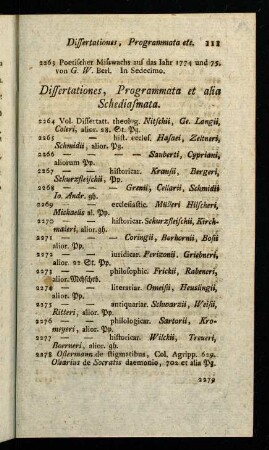 Dissertationes, Programmata etc. 111
2263 Poetischer Misswachs auf das Iahr 1774 und 75.
von G. W. Berl. In Sedecimo.
Dissertationes, Programmata et alia
Schediasmata.
2264 Vol. Dissertatt. theolog. Nitschii, Ge. Langii,
Coleri, alior. 28. St. Pg.
2265 — — hist. eccles. Hasaei, Zeltneri,
Schmidii, alior. Pg.
2266 — — — Sauberti, Cypriani,
aliorum Pp.
2267 — — historicar. Krausii, Bergeri,
Schurzfleischii, Pp.
2268 — — Graevii, Cellarii, Schmidii
Io. Andr. gh.
2269 — — ecclesiastic. Mülleri Hilscheri,
Michaelis al. Pp.
2270 — — historicar. Schurzfleischii, Kirch-
maieri, alior. gh.
2271 — — Coringii, Barbornii, Bosii
alior. Pp.
2272 — — iuridicar. Perizonii, Griebneri,
alior. 22 St. Pp.
2273 — — philosophic. Frickii, Rabeneri,
alior.
2274 — — literariar. Omeisii, Heusingii,
alior. Pp.
2275 — — antiquariar. Schwarzii, Weisii,
Ritteri, alior. Pp.
2276 — — philologicar. Sartorii, Kro-
meyeri, alior. Pp.
2277 — — historicar. Wilckii, Treueri,
Boerneri, alior. gh.
2278 Ostermann de stigmatibus, Col. Agripp. 629.
Olearius de Socratis daemonio, 702 et alia Pg.
2279